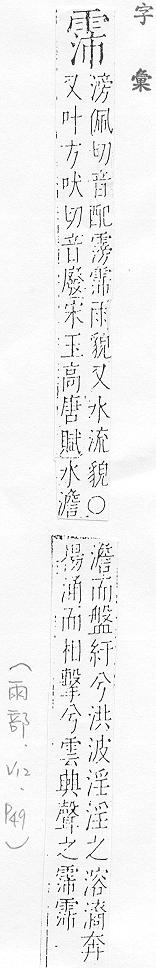 字彙
霈
滂佩切音配雱霈雨貌又水流貌○
又叶方吠切音廢宋玉高唐賦水澹
澹而盤紆兮洪波淫淫之溶㵝奔
揚涌而相擊兮雲興聲之霈霈
(雨部.V12.P49)